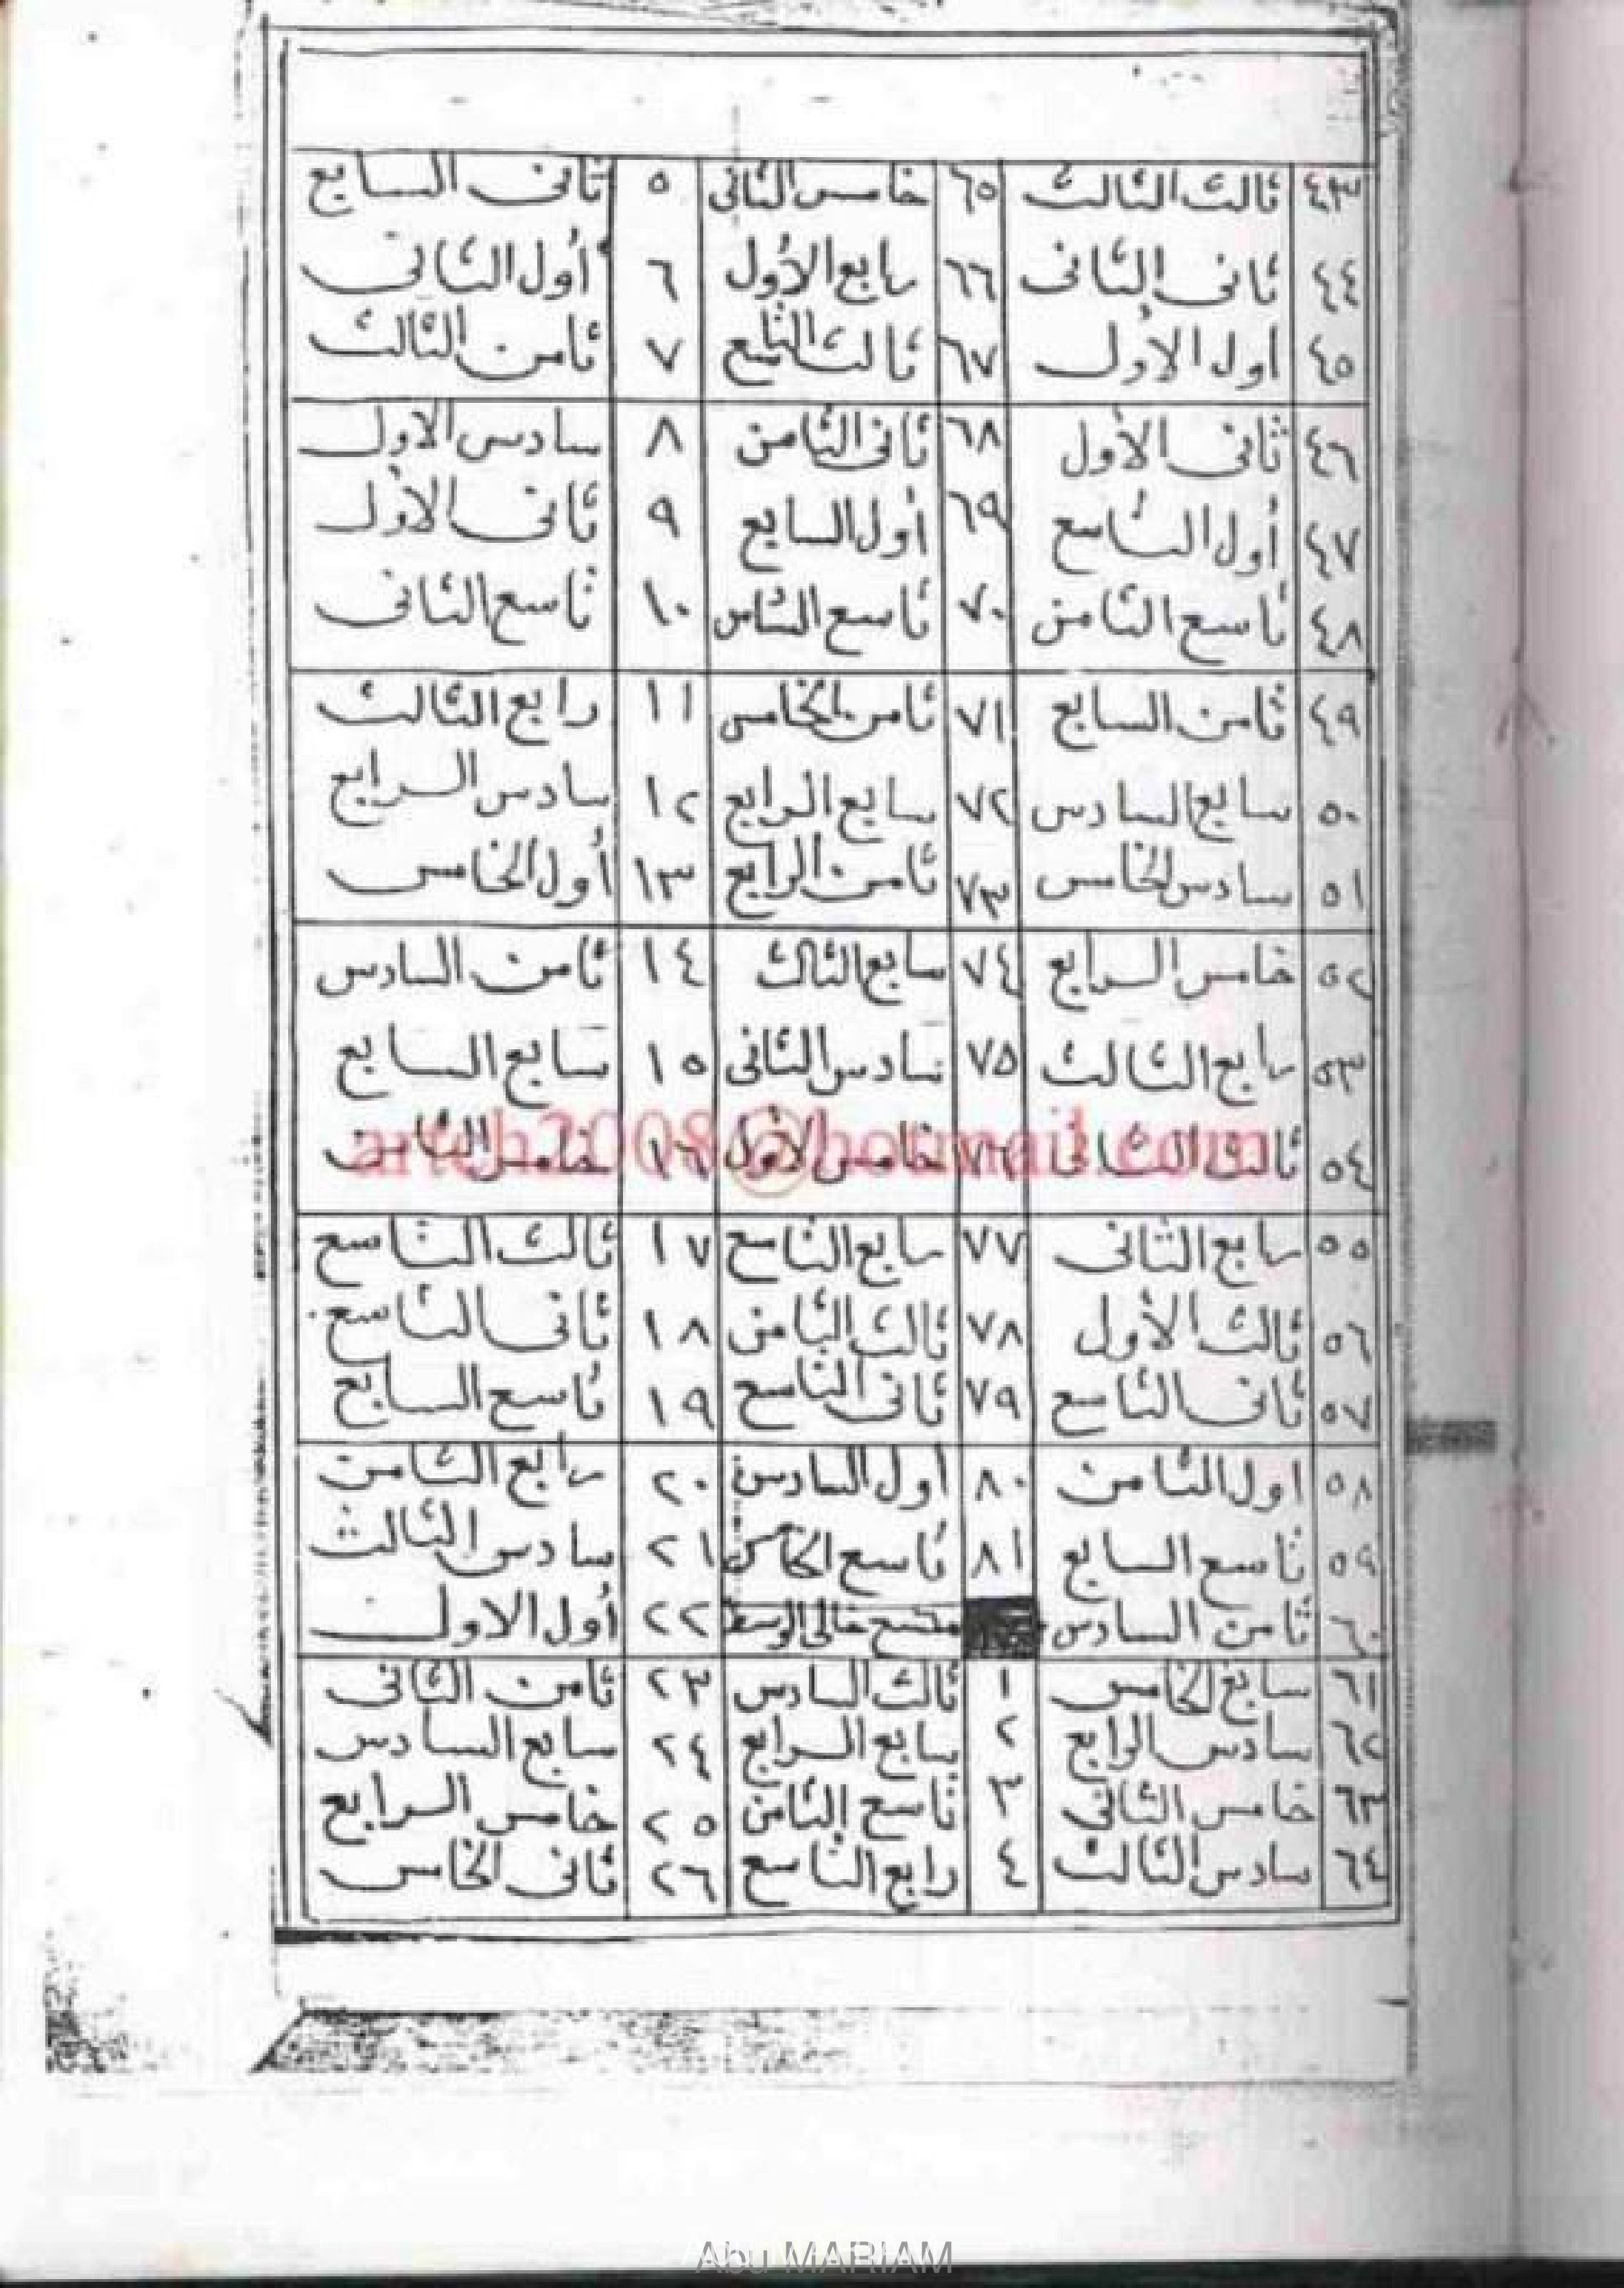 ٤٣ ثالث الثالث ٦٥ خامس الثانى ٥ ثانى السابع
٤٤ ثانى الثانى ٦٦ رابع الأول ٦ أول الثانى
٤٥ اول الاول ٦٧ ثالث التاسع ٧ ثامن الثالث
٤٦ ثانى الأول ٦٨ ثانى الثامن ٨ سادس الاول
٤٧ أول التاسع ٦٩ أول السابع ٩ ثانى الأول
٤٨ تاسع الثامن ٧٠ تاسع السادس ١٠ تاسع الثانى
٤٩ ثامن السابع ٧١ ثامن الخامس ١١ رابع الثالث
٥٠ سابع السادس ٧٢ سابع الرابع ١٢ سادس الرابع
٥١ سادس الخامس ٧٣ ثامن الرابع ١٣ أول الخامس
٥٢ خامس الرابع ٧٤ سابع الثالث ١٤ ثامن السادس
٥٣ رابع الثالث ٧٥ سادس الثانى ١٥ سابع السابع
٥٤ ثالث الثانى ٧٦ خامس الأول ١٦ خامس الثامن
artch2008@hotmail.com
٥٥ رابع الثانى ٧٧ رابع التاسع ١٧ ثالث التاسع
٥٦ ثالث الأول ٧٨ ثالث الثامن ١٨ ثانى التاسع
٥٧ ثانى التاسع ٧٩ ثانى التاسع ١٩ تاسع السابع
٥٨ اول الثامن ٨٠ اول السادس ٢٠ رابع الثامن
٥٩ تاسع السابع ٨١ تاسع الخامس ٢١ سادس الثالث
٦٠ ثامن السادس خالى الوسط ٢٢ أول الاول
٦١ سابع الخامس ١ ثالث السادس ٢٣ ثامن الثانى
٦٢ سادس الرابع ٢ سابع الرابع ٢٤ سابع السادس
٦٣ خامس الثانى ٣ تاسع الثامن ٢٥ خامس الرابع
٦٤ سادس الثالث ٤ رابع التاسع ٢٦ ثانى الخامس
Abu MARIAM